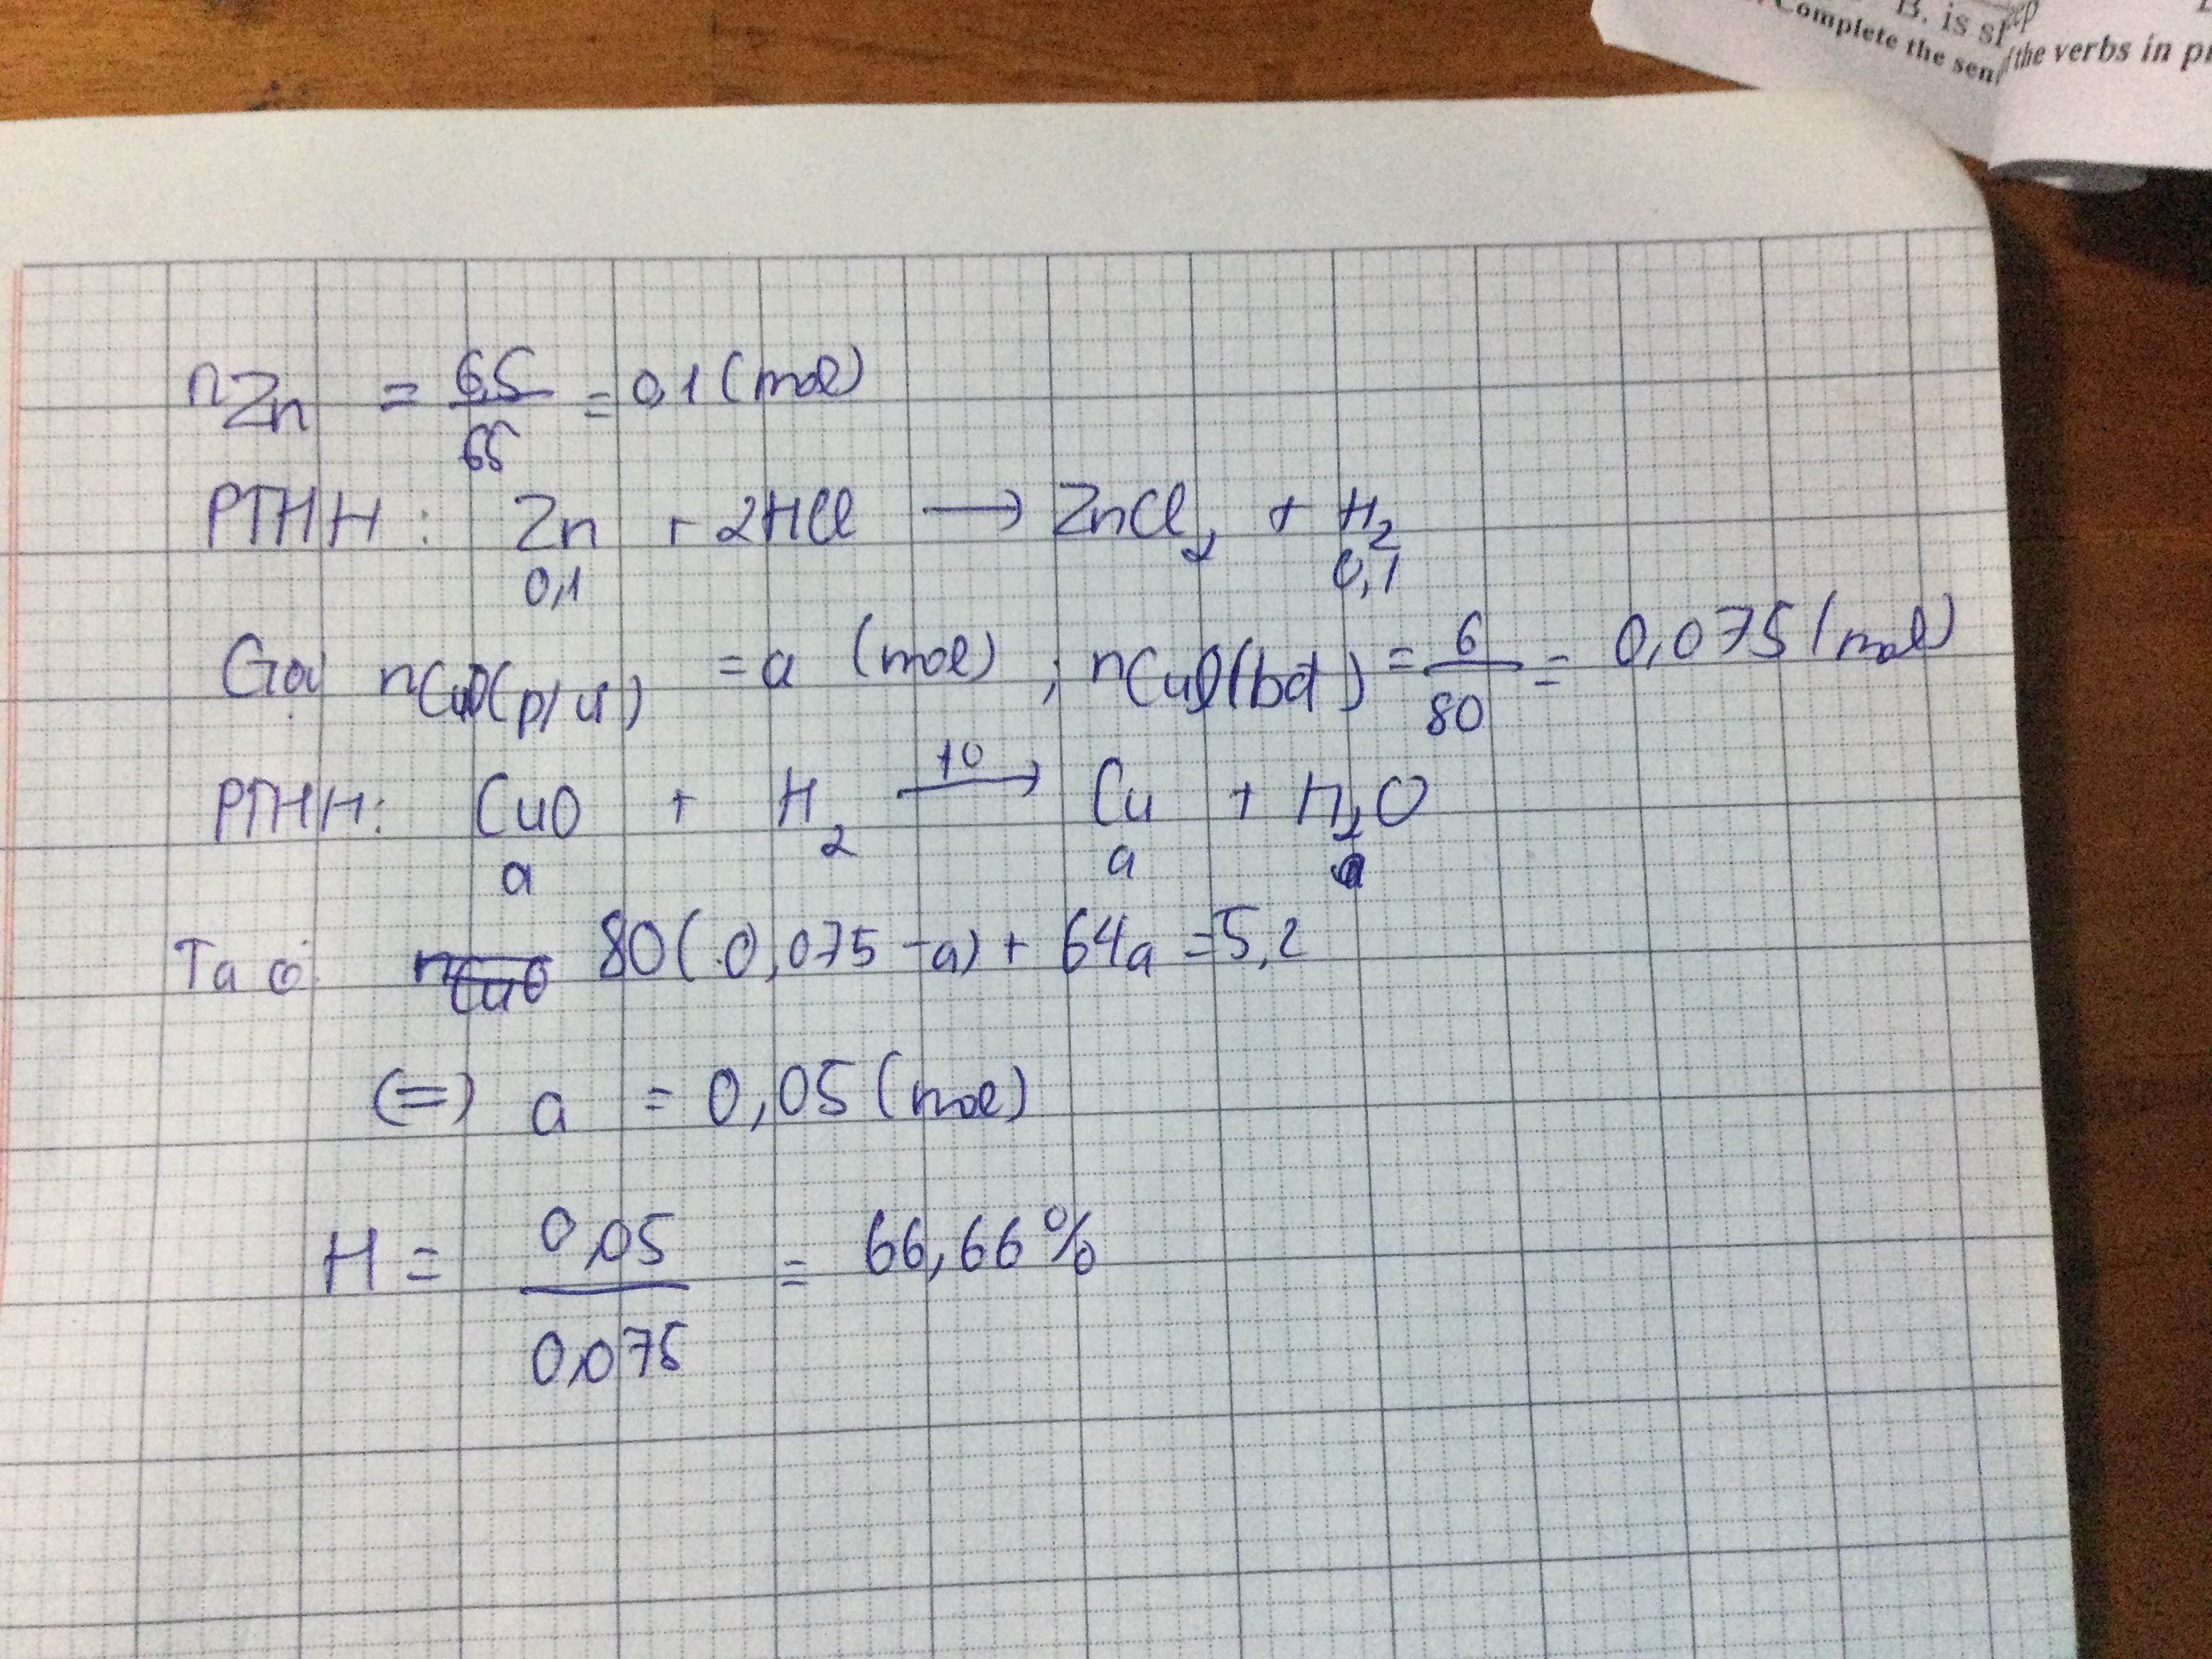 B. is sleep
Complete the sen
f the verbs in p
nZn = 6,5/65 = 0,1 (mol)
PTHH: Zn + 2HCl → ZnCl2 + H2
0,1 0,1
Gọi nCuO(p/ư) = a (mol) ; nCuO(bđ) = 6/80 = 0,075 (mol)
PTHH: CuO + H2 →to Cu + H2O
a a a
Ta có: nCuO 80(0,075 - a) + 64a = 5,2
(=) a = 0,05 (mol)
H = 0,05/0,075 = 66,66%